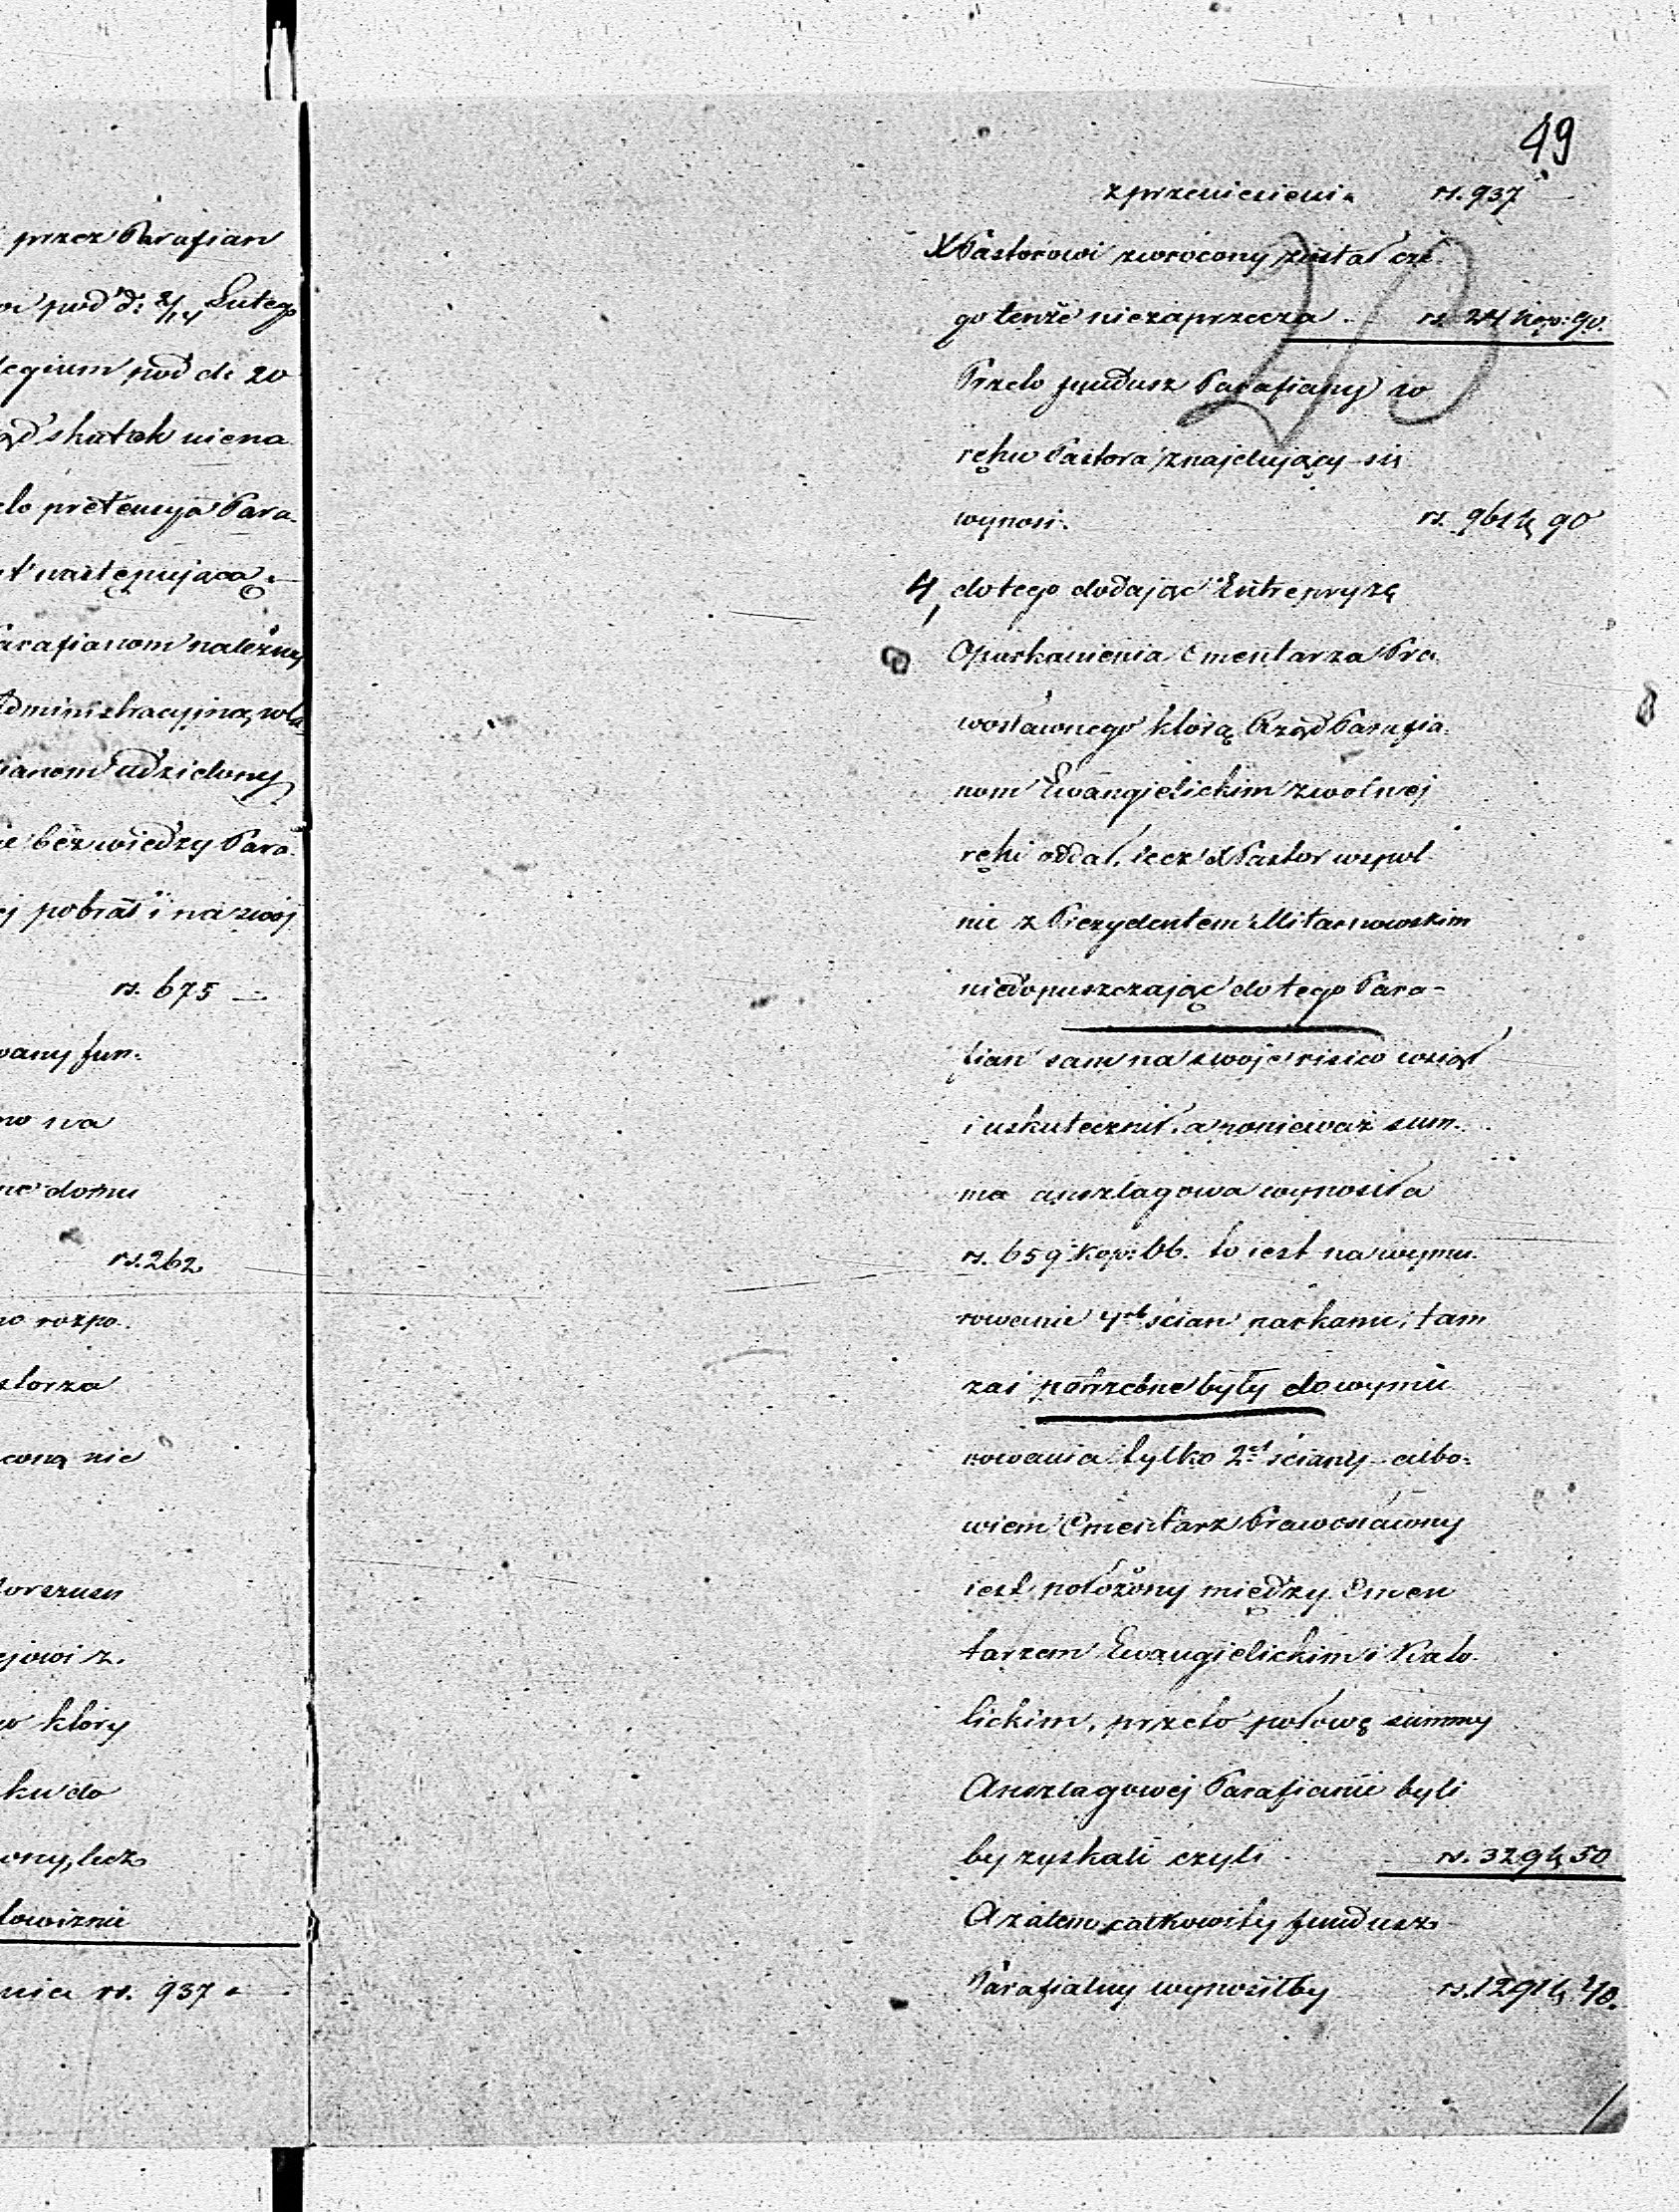 przez Parafian
pod d: 2/14 Lutego
legium pod d. 20
skutek niena
pretensya Para-
następująca.
arafianom należny
dministracyjną, wła
ianom udzielony
bez wiedzy Para-
pobrał i na swój
rs. 675 —
wany fun-
na
domu
rs. 262
rozpo-
nie
który
ku do
lecz
rs. 937
49
20
z przeniesienia rs. 937
X Pastorowi zwrócony został cze-
go tenże niezaprzecza. rs. 24 kop: 90.
Przeto fundusz Parafialny w
ręku Pastora znajdujący się
wynosi. rs. 961 k 90
4, do tego dodając Entrepryzę
Oparkanienia Cmentarza Pra-
wosławnego którą Rząd Parafia-
nom Ewangielickim z wolnej
ręki oddał, lecz X Pastor wspol-
nie z Prezydentem Mitarnowskim
niedopuszczając do tego Para-
fian sam na swoje risico wziął
i uskutecznił, a ponieważ sum-
ma anszlagowa wynosiła
rs. 659 kop: 66. to iest na wymu-
rowanie 4rech ścian parkanu, tam
zaś potrzebne były do wymu
rowania tylko 2ie ściany albo-
wiem Cmentarz Prawosławny
iest położony między Cmen
tarzem Ewangielickim i Kato-
lickim, przeto połowę summy
Anszlagowej Parafianie byli
by zyskali czyli rs. 329 k 50
A zatem całkowity fundusz
Parafialny wynosiłby rs. 1291 k 40.